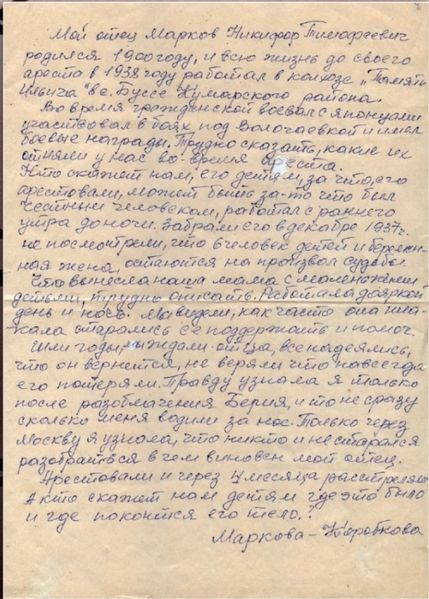 Мой отец Марков Никифор Тимофеевич
родился 1900 году, и всю жизнь до своего
ареста в 1938 году работал в колхозе „Память
Ильича" в с. Буссе Кумарского района.
Во время гражданской воевал с японцами
участвовал в боях под Волочаевкой и имел
боевые награды. Трудно сказать, какие их
отняли у нас во-время ареста.
Кто скажет нам, его детям, за что, его
арестовали, может быть за-то что был
честным человеком, работал с раннего
утра до ночи. Забрали его в декабре 1937г.
не посмотрели, что человек детей и беремен-
ная жена, остаются на произвол судьбы.
Что вынесла наша мама с маленькими
детьми, трудно описать. Работала дояркой
день и ночь. Мы видели, как часто она пла-
кала старались её поддержать и помоч.
Шли годы, мы ждали отца, все надеялись,
что он вернется, не верили что навсегда
его потеряли. Правду узнала я только
после разоблачения Берия, и то не сразу
сколько меня водили за нос. Только через
Москву я узнала, что никто и не старался
разобраться в чем виновен мой отец.
Арестовали и через 4 месяца расстреляли
А кто скажет нам детям где это было
и где покоится его тело.
Маркова - Коробкова